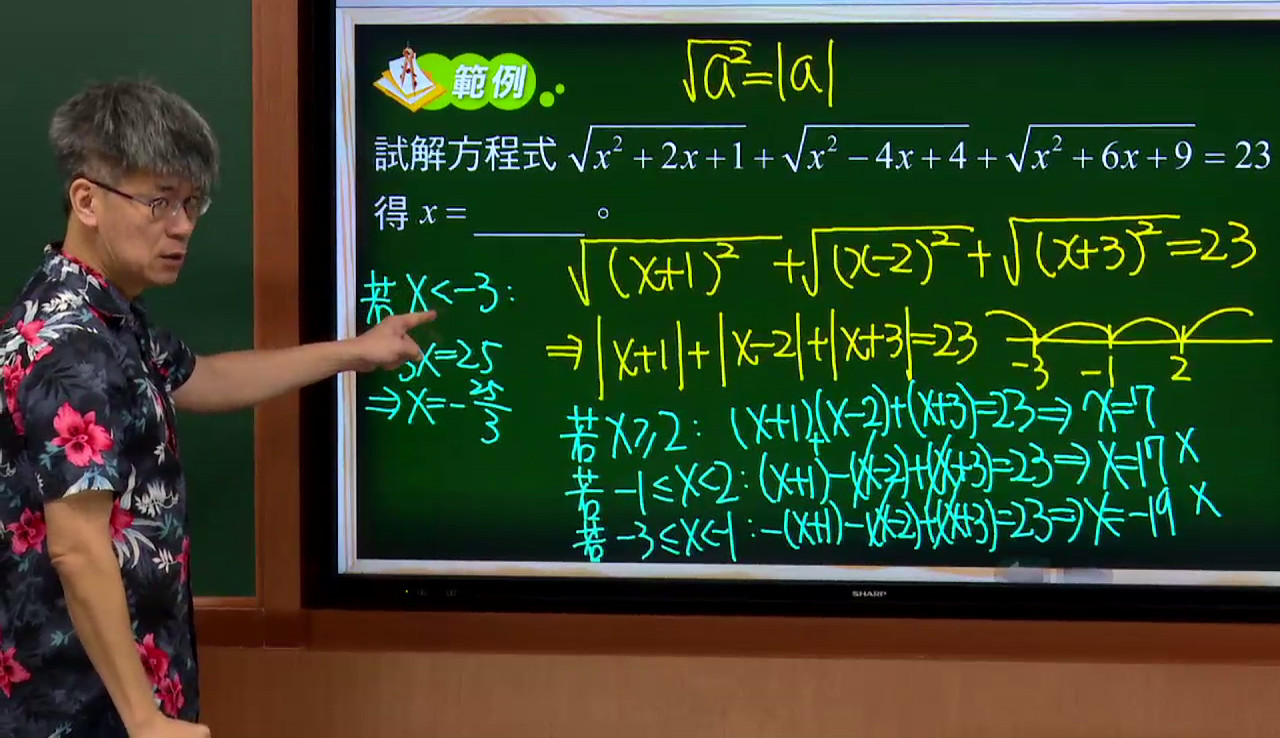 範例
√a² = |a|
試解方程式 √(x² + 2x + 1) + √(x² − 4x + 4) + √(x² + 6x + 9) = 23
得 x = ________ 。
√(x+1)² + √(x-2)² + √(x+3)² = 23
⇒ |x+1| + |x-2| + |x+3| = 23
-3 -1 2
若 x≥2 : (x+1)+(x-2)+(x+3)=23 ⇒ x=7
若 -1≤x<2 : (x+1)-(x-2)+(x+3)=23 ⇒ x=17 ×
若 -3≤x<-1 : -(x+1)-(x-2)+(x+3)=23 ⇒ x=-19 ×
若 x<-3 :
3x=25
⇒ x=-25/3
SHARP